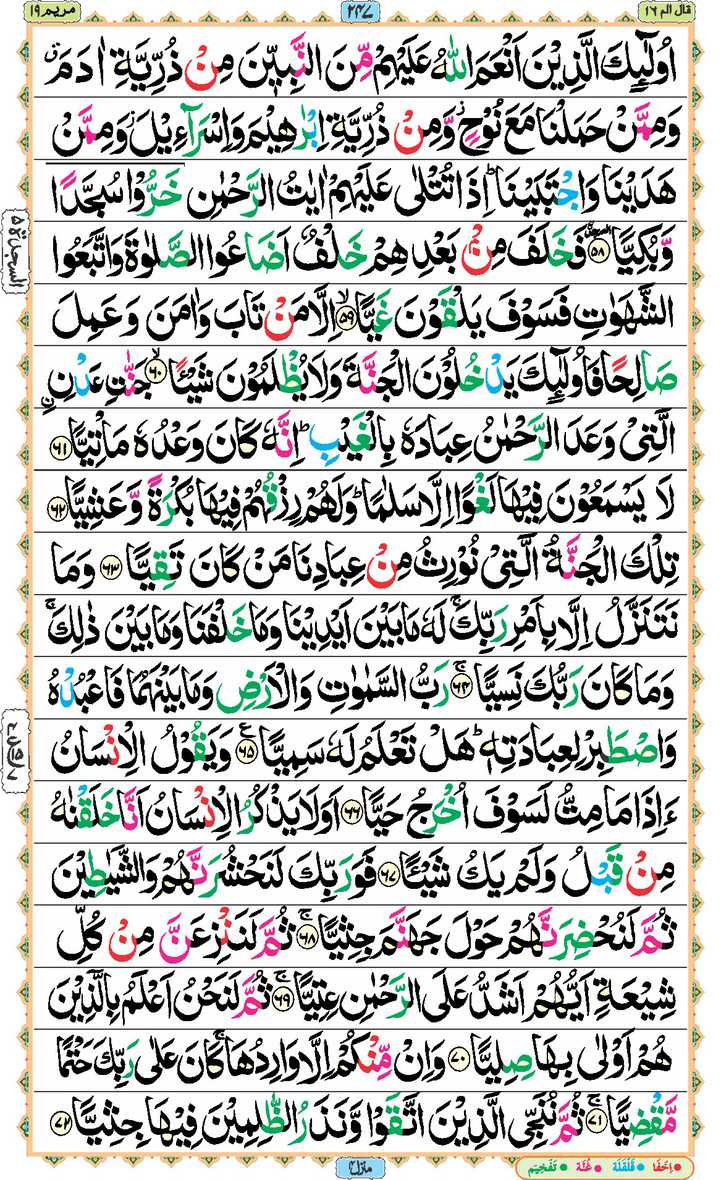 قال الم ١٦
٢٤٧
مريم ١٩
اُولٰٓئِكَ الَّذِيْنَ اَنْعَمَ اللّٰهُ عَلَيْهِمْ مِّنَ النَّبِيّٖنَ مِنْ ذُرِّيَّةِ اٰدَمَ ق
وَمِمَّنْ حَمَلْنَا مَعَ نُوْحٍ ز وَّمِنْ ذُرِّيَّةِ اِبْرٰهِيْمَ وَاِسْرَآءِيْلَ ز وَمِمَّنْ
هَدَيْنَا وَاجْتَبَيْنَا ط اِذَا تُتْلٰى عَلَيْهِمْ اٰيٰتُ الرَّحْمٰنِ خَرُّوْا سُجَّدًا
وَّبُكِيًّا ۝٥٨ السجدة فَخَلَفَ مِنْۢ بَعْدِهِمْ خَلْفٌ اَضَاعُوا الصَّلٰوةَ وَاتَّبَعُوا
الشَّهَوٰتِ فَسَوْفَ يَلْقَوْنَ غَيًّا ۝٥٩ لا اِلَّا مَنْ تَابَ وَاٰمَنَ وَعَمِلَ
صَالِحًا فَاُولٰٓئِكَ يَدْخُلُوْنَ الْجَنَّةَ وَلَا يُظْلَمُوْنَ شَيْـًٔا ۝٦٠ لا جَنّٰتِ عَدْنِ ࣙ
الَّتِيْ وَعَدَ الرَّحْمٰنُ عِبَادَهٗ بِالْغَيْبِ ط اِنَّهٗ كَانَ وَعْدُهٗ مَاْتِيًّا ۝٦١
لَا يَسْمَعُوْنَ فِيْهَا لَغْوًا اِلَّا سَلٰمًا ط وَلَهُمْ رِزْقُهُمْ فِيْهَا بُكْرَةً وَّعَشِيًّا ۝٦٢
تِلْكَ الْجَنَّةُ الَّتِيْ نُوْرِثُ مِنْ عِبَادِنَا مَنْ كَانَ تَقِيًّا ۝٦٣ وَمَا
نَتَنَزَّلُ اِلَّا بِاَمْرِ رَبِّكَ ج لَهٗ مَا بَيْنَ اَيْدِيْنَا وَمَا خَلْفَنَا وَمَا بَيْنَ ذٰلِكَ ج
وَمَا كَانَ رَبُّكَ نَسِيًّا ۝٦٤ ج رَبُّ السَّمٰوٰتِ وَالْاَرْضِ وَمَا بَيْنَهُمَا فَاعْبُدْهُ
وَاصْطَبِرْ لِعِبَادَتِهٖ ط هَلْ تَعْلَمُ لَهٗ سَمِيًّا ۝٦٥ ع وَيَقُوْلُ الْاِنْسَانُ
ءَاِذَا مَا مِتُّ لَسَوْفَ اُخْرَجُ حَيًّا ۝٦٦ اَوَلَا يَذْكُرُ الْاِنْسَانُ اَنَّا خَلَقْنٰهُ
مِنْ قَبْلُ وَلَمْ يَكُ شَيْـًٔا ۝٦٧ فَوَرَبِّكَ لَنَحْشُرَنَّهُمْ وَالشَّيٰطِيْنَ
ثُمَّ لَنُحْضِرَنَّهُمْ حَوْلَ جَهَنَّمَ جِثِيًّا ۝٦٨ ج ثُمَّ لَنَنْزِعَنَّ مِنْ كُلِّ
شِيْعَةٍ اَيُّهُمْ اَشَدُّ عَلَى الرَّحْمٰنِ عِتِيًّا ۝٦٩ ج ثُمَّ لَنَحْنُ اَعْلَمُ بِالَّذِيْنَ
هُمْ اَوْلٰى بِهَا صِلِيًّا ۝٧٠ وَاِنْ مِّنْكُمْ اِلَّا وَارِدُهَا ج كَانَ عَلٰى رَبِّكَ حَتْمًا
مَّقْضِيًّا ۝٧١ ج ثُمَّ نُنَجِّي الَّذِيْنَ اتَّقَوْا وَّنَذَرُ الظّٰلِمِيْنَ فِيْهَا جِثِيًّا ۝٧٢
السجدة ٥
منزل ٤
اِخْفَا • قَلْقَلَة • غُنَّة • تَفْخِيْم •